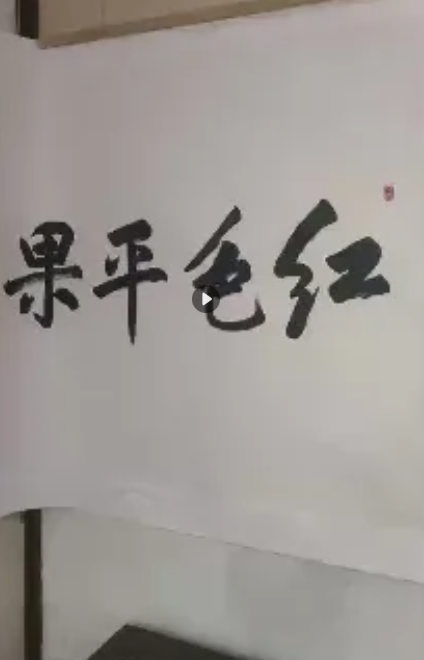 红色平果